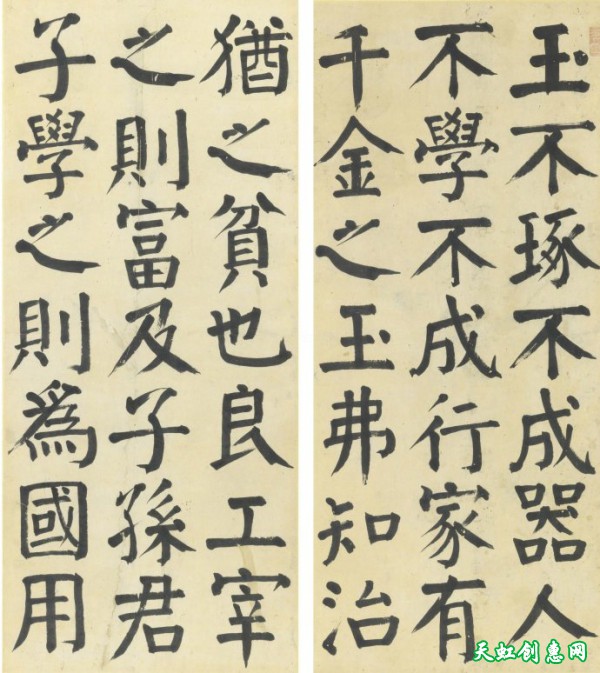 玉不琢不成器人
不學不成行家有
千金之玉弗知治
猶之貧也良工宰
之則富及子孫君
子學之則為國用
天虹创惠网